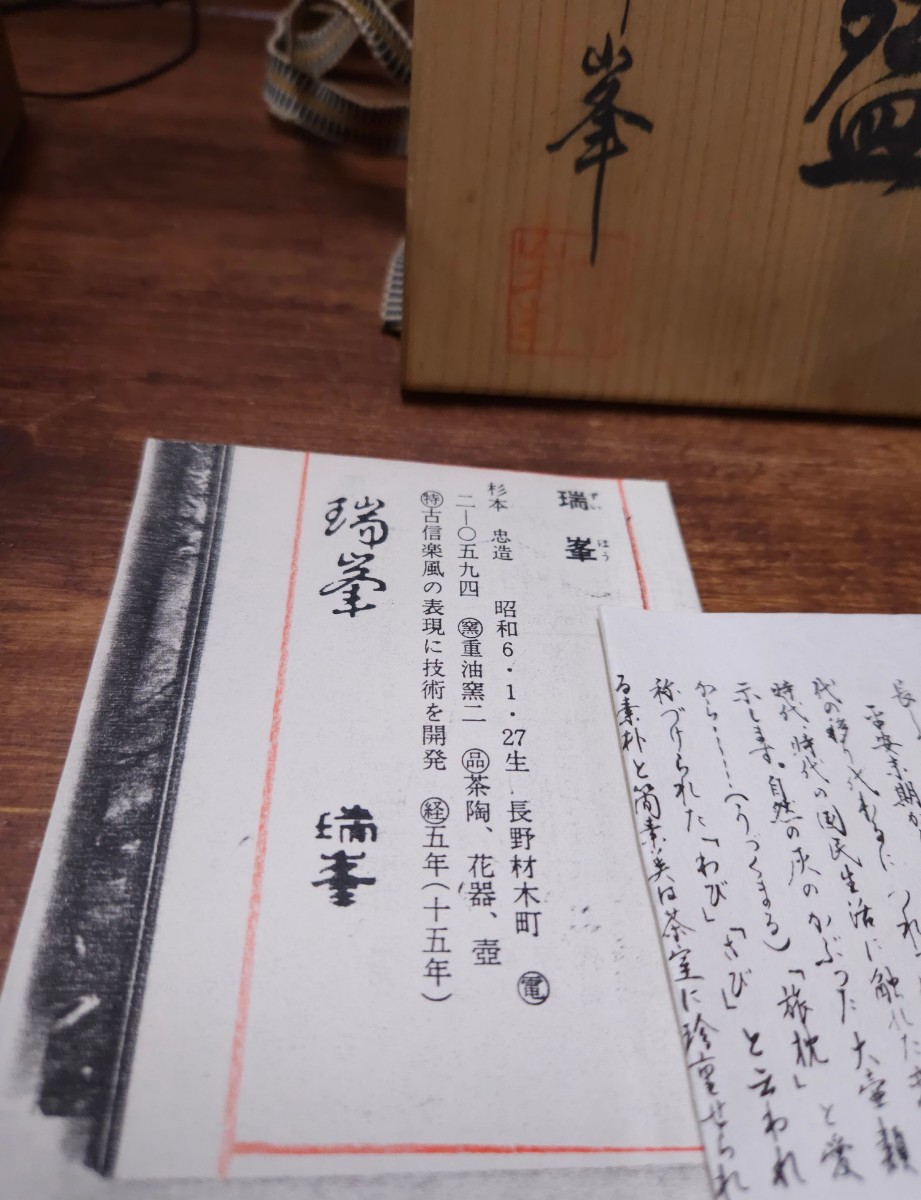 峯
瑞峯
ずい ほう
杉本 忠造 昭和6・1・27生 長野材木町 ㊥電
二―〇五九四 ㊥窯重油窯二 ㊥品茶陶、花器、壺
㊕古信楽風の表現に技術を開発 ㊥経五年(十五年)
瑞峯
瑞峯
長
平安末期か
代の移り代わるにつれ
時代、時代の国民生活に触れた
示します。自然の灰のかぶった大壷類
から……(うづくまる)「旅枕」と愛
称づけられた「わび」「さび」と云われ
る素朴と簡素美は茶室に珍重せられ